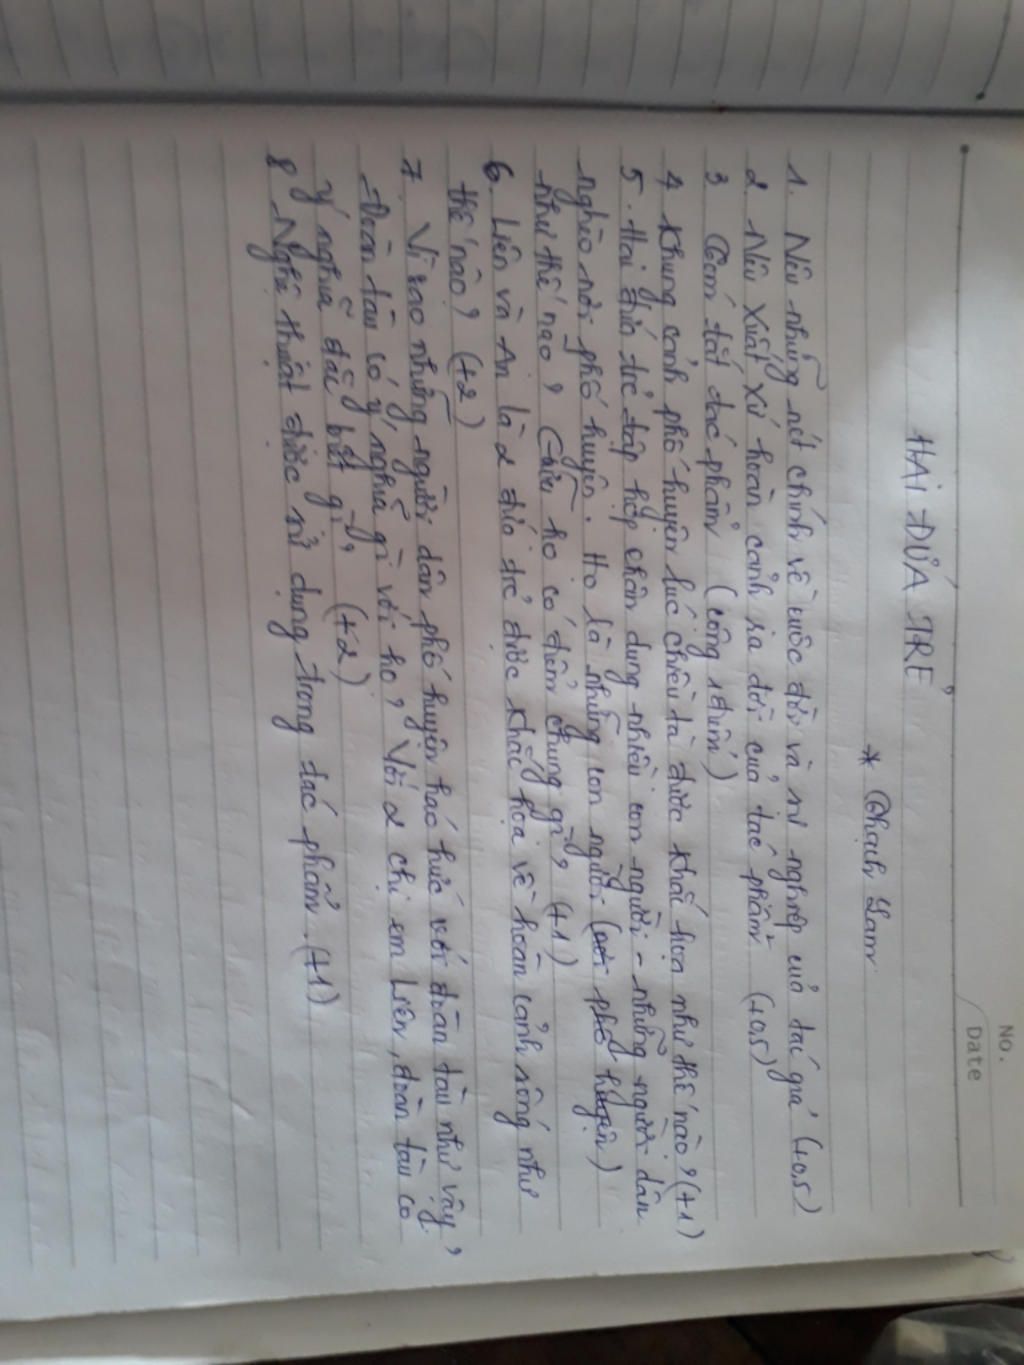 No.
Date
HAI ĐỨA TRẺ
* Thạch Lam
1. Nêu những nét chính về cuộc đời và sự nghiệp của tác giả (+0,5)
2. Nêu xuất xứ hoàn cảnh ra đời của tác phẩm (+0,5)
3 Tóm tắt tác phẩm (cộng 1 điểm)
4 Khung cảnh phố huyện lúc chiều tà được khắc họa như thế nào? (+1)
5. Hai đứa trẻ tập hợp chân dung nhiều con người - những người dân
nghèo nơi phố huyện. Họ là những con người (nơi phố huyện)
như thế nào? Giữa họ có điểm chung gì? (+1)
6. Liên và An là 2 đứa trẻ được khắc họa về hoàn cảnh sống như
thế nào? (+2)
7. Vì sao những người dân phố huyện háo hức với đoàn tàu như vậy?
- Đoàn tàu có ý nghĩa gì với họ? Với 2 chị em Liên, đoàn tàu có
ý nghĩa đặc biệt gì? (+2)
8 Nghệ thuật được sử dụng trong tác phẩm. (+1)